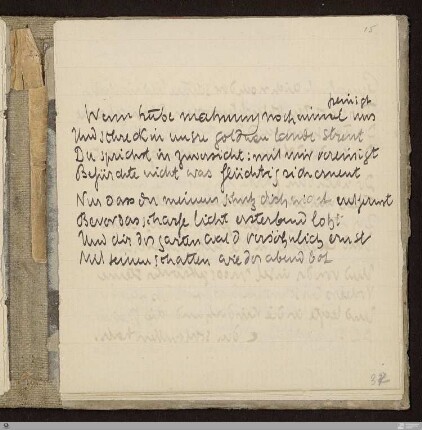 15
peinigt
Wenn trübe mahnung noch einmal uns
Und schreck in unsre goldnen lande streut
Du sprichst in zuversicht: mit mir vereinigt
Befürchte nicht was flüchtig sich erneut
Nur dass du meinem schutz dich nicht entfernst
Bevor das scharfe licht ersterbend loht
Und dir der garten wald versöhnlich ernst
Mit seinen schatten wieder abend bot
32